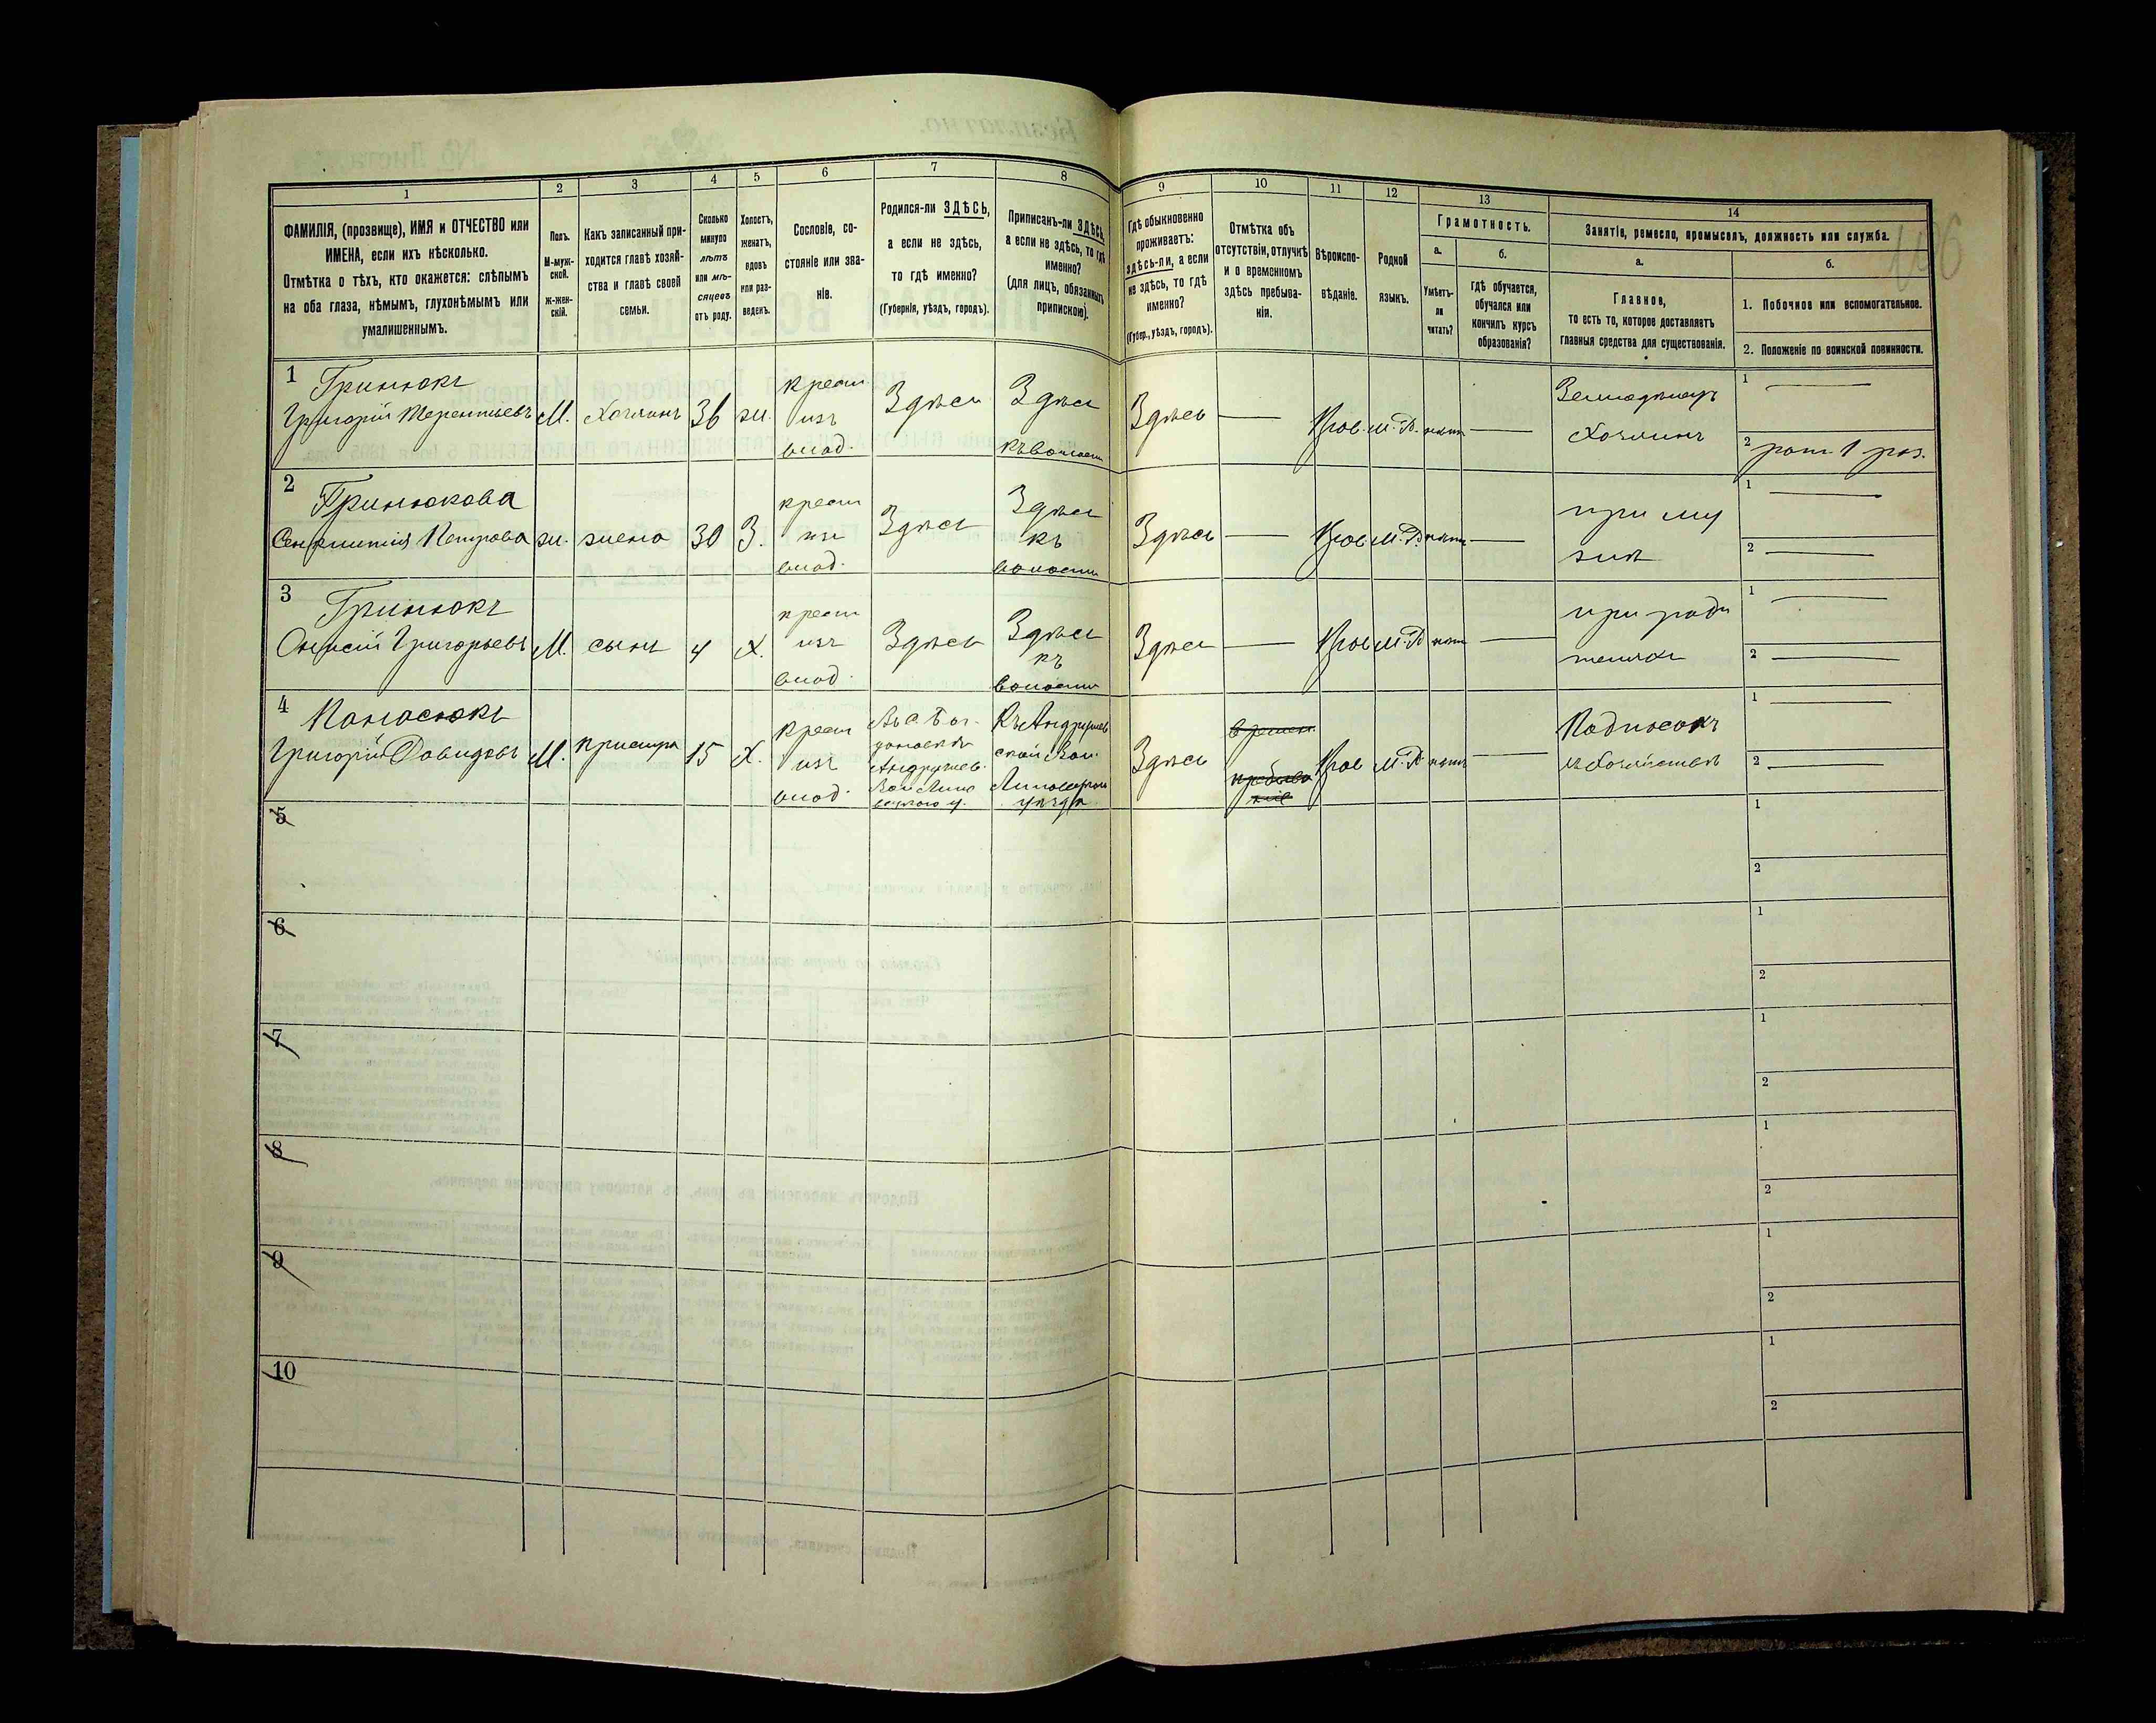 1
2
3
4
5
6
7
8
9
10
11
12
13
14
ФАМИЛІЯ, (прозвище), ИМЯ и ОТЧЕСТВО или
ИМЕНА, если ихъ нѣсколько.
Отмѣтка о тѣхъ, кто окажется: слѣпымъ
на оба глаза, нѣмымъ, глухонѣмымъ или
умалишеннымъ.
Полъ.
М-муж-
ской.
ж-жен-
скій.
Какъ записанный при-
ходится главѣ хозяй-
ства и главѣ своей
семьи.
Сколько
минуло
лѣтъ
или мѣ-
сяцевъ
отъ роду.
Холостъ,
женатъ,
вдовъ
или раз-
веденъ.
Сословіе, со-
стояніе или зва-
ніе.
Родился-ли ЗДѢСЬ,
а если не здѣсь,
то гдѣ именно?
(Губернія, уѣздъ, городъ).
Приписанъ-ли ЗДѢСЬ,
а если не здѣсь, то гдѣ
именно?
(для лицъ, обязанныхъ
припискою).
Гдѣ обыкновенно
проживаетъ:
здѣсь-ли, а если
не здѣсь, то гдѣ
именно?
(Губер., уѣздъ, городъ).
Отмѣтка объ
отсутствіи, отлучкѣ
и о временномъ
здѣсь пребыва-
ніи.
Вѣроиспо-
вѣданіе.
Родной
языкъ.
Грамотность.
а.
Умѣетъ-
ли
читать?
б.
гдѣ обучается,
обучался или
кончилъ курсъ
образованія?
Занятіе, ремесло, промыселъ, должность или служба.
а.
Главное,
то есть то, которое доставляетъ
главныя средства для существованія.
б.
1. Побочное или вспомогательное.
2. Положеніе по воинской повинности.
1 Гринюкъ
Григорій Терентьевъ М. Хозяинъ 36 ж. крест
изъ
влад. Здѣсь Здѣсь
къ волости Здѣсь — Прав. М.Р. нѣтъ — Земледѣлецъ
Хозяинъ 1 —
2 рат. 1 раз.
2 Гринюкова
Петрова ж. жена 30 З. крест
изъ
влад. Здѣсь Здѣсь
къ
волости Здѣсь — Прав. М.Р. нѣтъ — при му
жѣ 1 —
2 —
3 Гринюкъ
Онисій Григорьевъ М. сынъ 4 Х. крест
изъ
влад. Здѣсь Здѣсь
къ
волости Здѣсь — Прав М.Р. нѣтъ — при роди
теляхъ 1 —
2 —
4 Панасюкъ
Григорій Давидовъ М. 15 Х. крест
изъ
влад.
Андрушев. Къ Андрушев
ской Вол.
Липовецкаго
уѣзда Здѣсь
времен.
пребыва
ніе Прав М.Р. нѣтъ — Подпасокъ
1 —
2 —
5 1
2
6 1
2
7 1
2
8 1
2
9 1
2
10 1
2